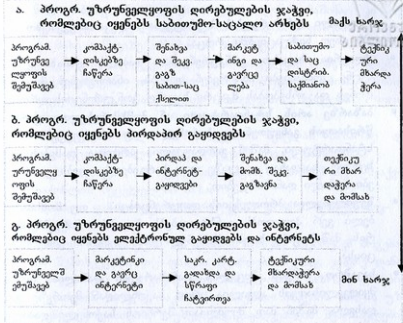 ა. პროგრ. უზრუნველყოფის ღირებულების ჯაჭვი,
რომლებიც იყენებს საბითუმო-საცალო არხებს მაქს ხარჯ
პროგრამ. უზრუნვე ლყოფის შემუშავებ
კომპაქტ- დისკებზე ჩაწერა
შენახვა და შეკვ. გაგზ საბით-საც ქსელით
მარკეტ ინგი და გავრცე ლება
საბითუმო და საც დისტრიბ. საქმიანობ
ტექნიკ ური მხარდა ჭერა
ბ. პროგრ. უზრუნველყოფის ღირებულების ჯაჭვი,
რომლებიც იყენებს პირდაპირ გაყიდვებს
პროგრამ. ურუნველყ ოფის შემუშავებ
კომპაქტ- დისკებზე ჩაწერა
პირდაპ და ინტერნეტ- გაყიდვები
შენახვა და მომხ. შეკვ. გაგზავნა
თექნიკუ რი მხარ დაჭერა და მომსახ
გ. პროგრ. უზრუნველყოფის ღირებულების ჯაჭვი,
რომლებიც იყენებს ელექტრონულ გაყიდვებს და ინტერნეტს
პროგრამ. უზრუნველშ ემუშავებ
მარკეტინკი და გავრც ინტერნეტი
საკრ. კარტ. გადახდა და სწრაფი ჩატვირთვა
ტექნიკური მხარდაჭერა და მომსახ
მინ ხარჯ